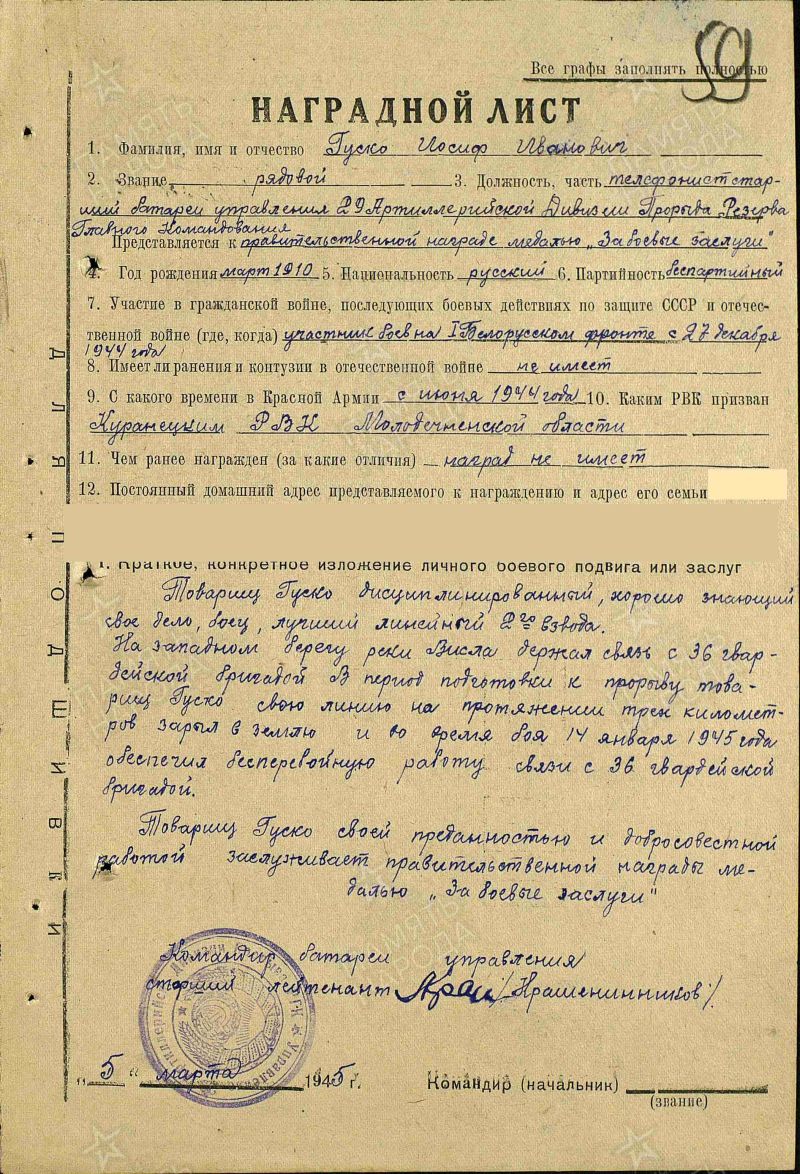 59
Все графы заполнять полностью
НАГРАДНОЙ ЛИСТ
1. Фамилия, имя и отчество Гуско Иосиф Иванович
2. Звание рядовой 3. Должность, часть телефонист стар-
ший батареи управления 29 Артиллерийской Дивизии Прорыва Резерва
Главного Командования
Представляется к правительственной награде медалью „За боевые заслуги"
4. Год рождения март 1910 5. Национальность русский 6. Партийность беспартийный
7. Участие в гражданской войне, последующих боевых действиях по защите СССР и отечес-
твенной войне (где, когда) участник боев на I Белорусском фронте с 27 декабря
1944 года
8. Имеет ли ранения и контузии в отечественной войне не имеет
9. С какого времени в Красной Армии с июня 1944 года 10. Каким РВК призван
Куранецким РВК Молодечненской области
11. Чем ранее награжден (за какие отличия) наград не имеет
12. Постоянный домашний адрес представляемого к награждению и адрес его семьи
1. Краткое, конкретное изложение личного боевого подвига или заслуг
Товарищ Гуско дисциплинированный, хорошо знающий
свое дело, боец, лучший линейный 2го взвода.
На западном берегу реки Висла держал связь с 36 гвар-
дейской бригадой В период подготовки к прорыву това-
рищ Гуско свою линию на протяжении трех километ-
ров зарыл в землю и во время боя 14 января 1945 года
обеспечил бесперебойную работу связи с 36 гвардейской
бригадой.
Товарищ Гуско своей преданностью и добросовестной
работой заслуживает правительственной награды ме-
далью „За боевые заслуги"
Командир батареи управления
старший лейтенант /Крашенинников/
„5" марта 1945 г. Командир (начальник)
(звание)
ДЛЯ ПОДШИВКИ
ПАМЯТЬ НАРОДА